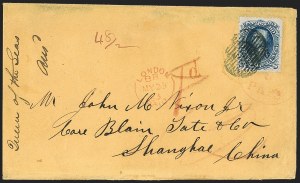 Queen of the Seas
45/2
LONDON
PAID
Mr John M. Nixon Jr
Care Blain Tate & Co
Shanghae
China